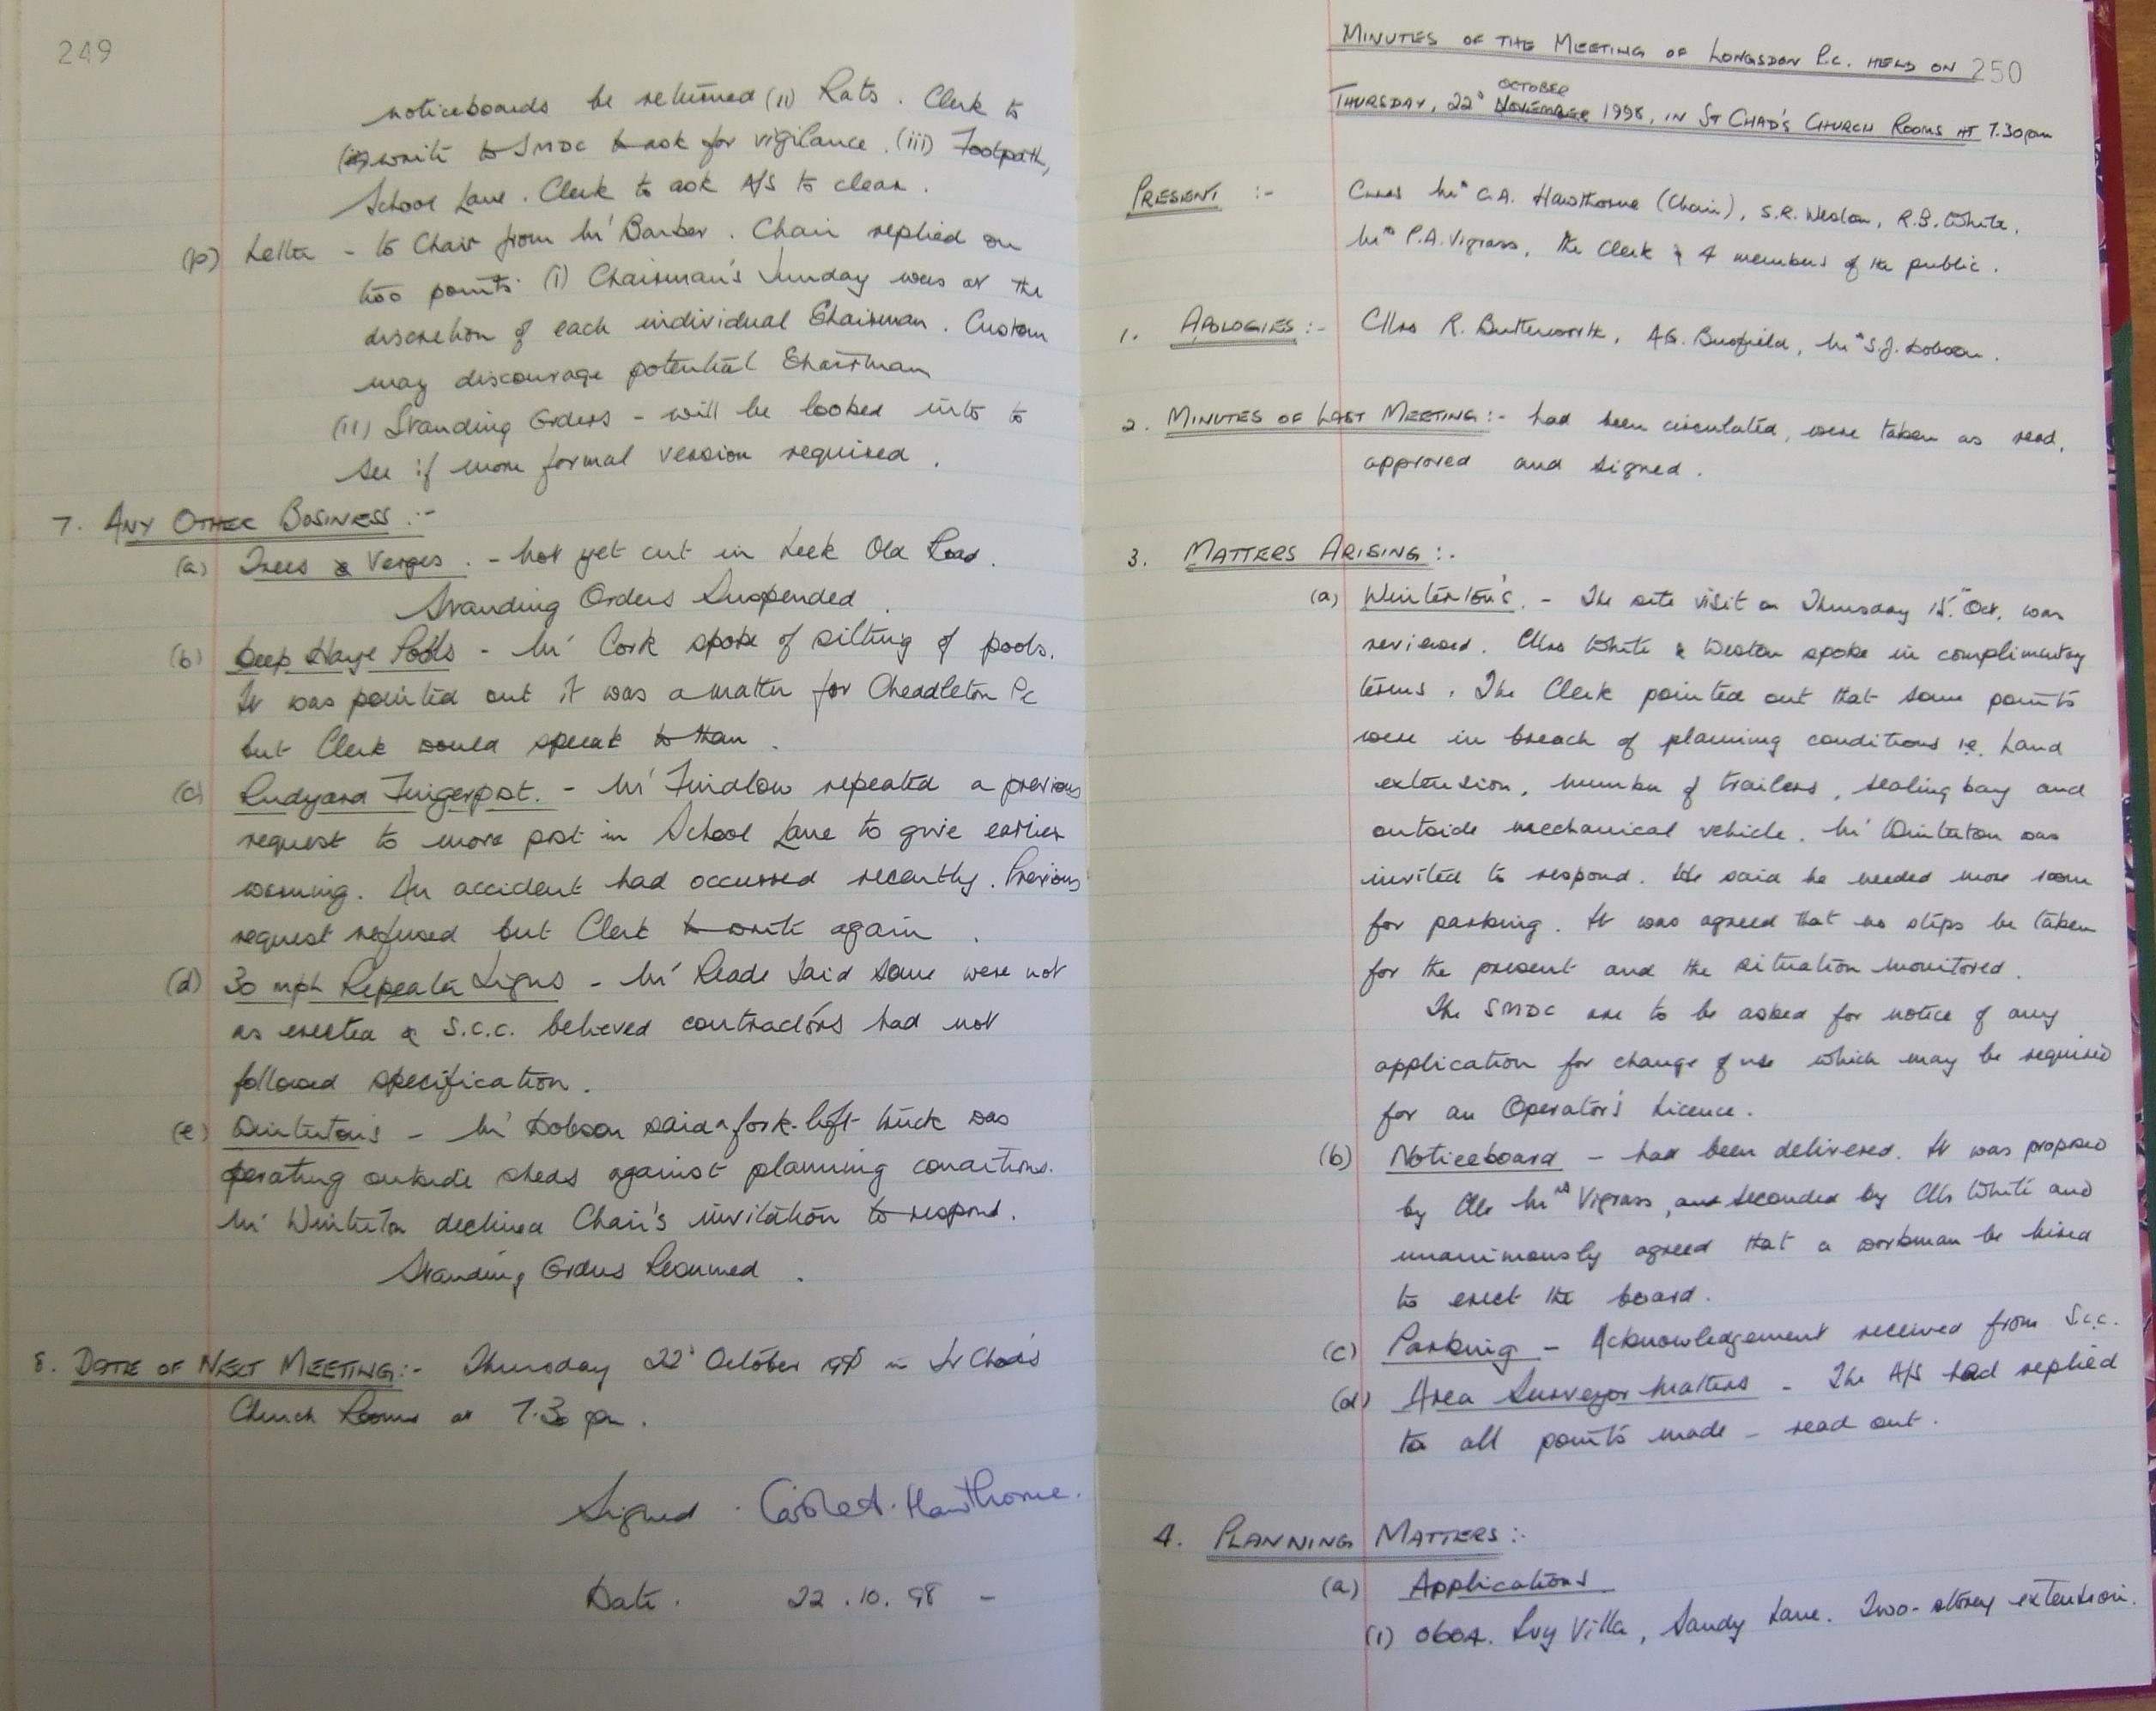 249
noticeboards be returned (ii) Rats. Clerk to
write to SMDC to ask for vigilance. (iii) Footpath,
School Lane. Clerk to ask A/S to clear.
(p) Letter - to Chair from Mr Barber. Chair replied on
two points (i) Chairman's Sunday was at the
discretion of each individual Chairman. Custom
may discourage potential Chairman
(ii) Standing Orders - will be looked into to
see if more formal version required.
7. ANY OTHER BUSINESS :-
(a) Trees & Verges. - Not yet cut in Leek Old Road.
Standing Orders Suspended.
(b) Deep Haye Pools - Mr Cork spoke of silting of pools.
It was pointed out it was a matter for Cheddleton Pc
but Clerk would speak to them.
(c) Rudyard Fingerpost. - Mr Findlow repeated a previous
request to move post in School Lane to give earlier
warning. An accident had occurred recently. Previous
request refused but Clerk to write again.
(d) 30 mph Repeater Signs - Mr Reade said some were not
as erected & S.C.C. believed contractors had not
followed specification.
(e) Winterton's - Mr Dobson said a fork-lift truck was
operating outside sheds against planning conditions.
Mr Winterton declined Chair's invitation to respond.
Standing Orders Resumed.
8. DATE OF NEXT MEETING:- Thursday 22d October 1998 in St Chad's
Church Rooms at 7.30 pm.
Signed. Carole A. Hawthorne.
Date. 22.10.98 -
MINUTES OF THE MEETING OF LONGSDON P.C. HELD ON 250
OCTOBER
THURSDAY, 22d NOVEMBER 1998, IN ST CHAD'S CHURCH ROOMS AT 7.30pm
PRESENT :- Cllrs Mrs C.A. Hawthorne (Chair), S.R. Weston, R.B. White,
Mrs P.A. Vigrass, the Clerk & 4 members of the public.
1. APOLOGIES :- Cllrs R. Butterworth, A.G. Busfield, Mrs S.J. Dobson.
2. MINUTES OF LAST MEETING :- had been circulated, were taken as read,
approved and signed.
3. MATTERS ARISING :-
(a) Winterton's. - The site visit on Thursday 15th Oct. was
reviewed. Cllrs White & Weston spoke in complimentary
terms. The Clerk pointed out that some points
were in breach of planning conditions i.e. Land
extension, number of trailers, sealing bay and
outside mechanical vehicle. Mr Winterton was
invited to respond. He said he needed more room
for parking. It was agreed that no steps be taken
for the present and the situation monitored.
The SMDC are to be asked for notice of any
application for change of use which may be required
for an Operator's Licence.
(b) Noticeboard - had been delivered. It was proposed
by Cllr Mrs Vigrass, and seconded by Cllr White and
unanimously agreed that a workman be hired
to erect the board.
(c) Parking - Acknowledgement received from S.C.C.
(d) Area Surveyor Matters - The A/S had replied
to all points made - read out.
4. PLANNING MATTERS :-
(a) Applications
(i) 0604. Ivy Villa, Sandy Lane. Two-storey extension.